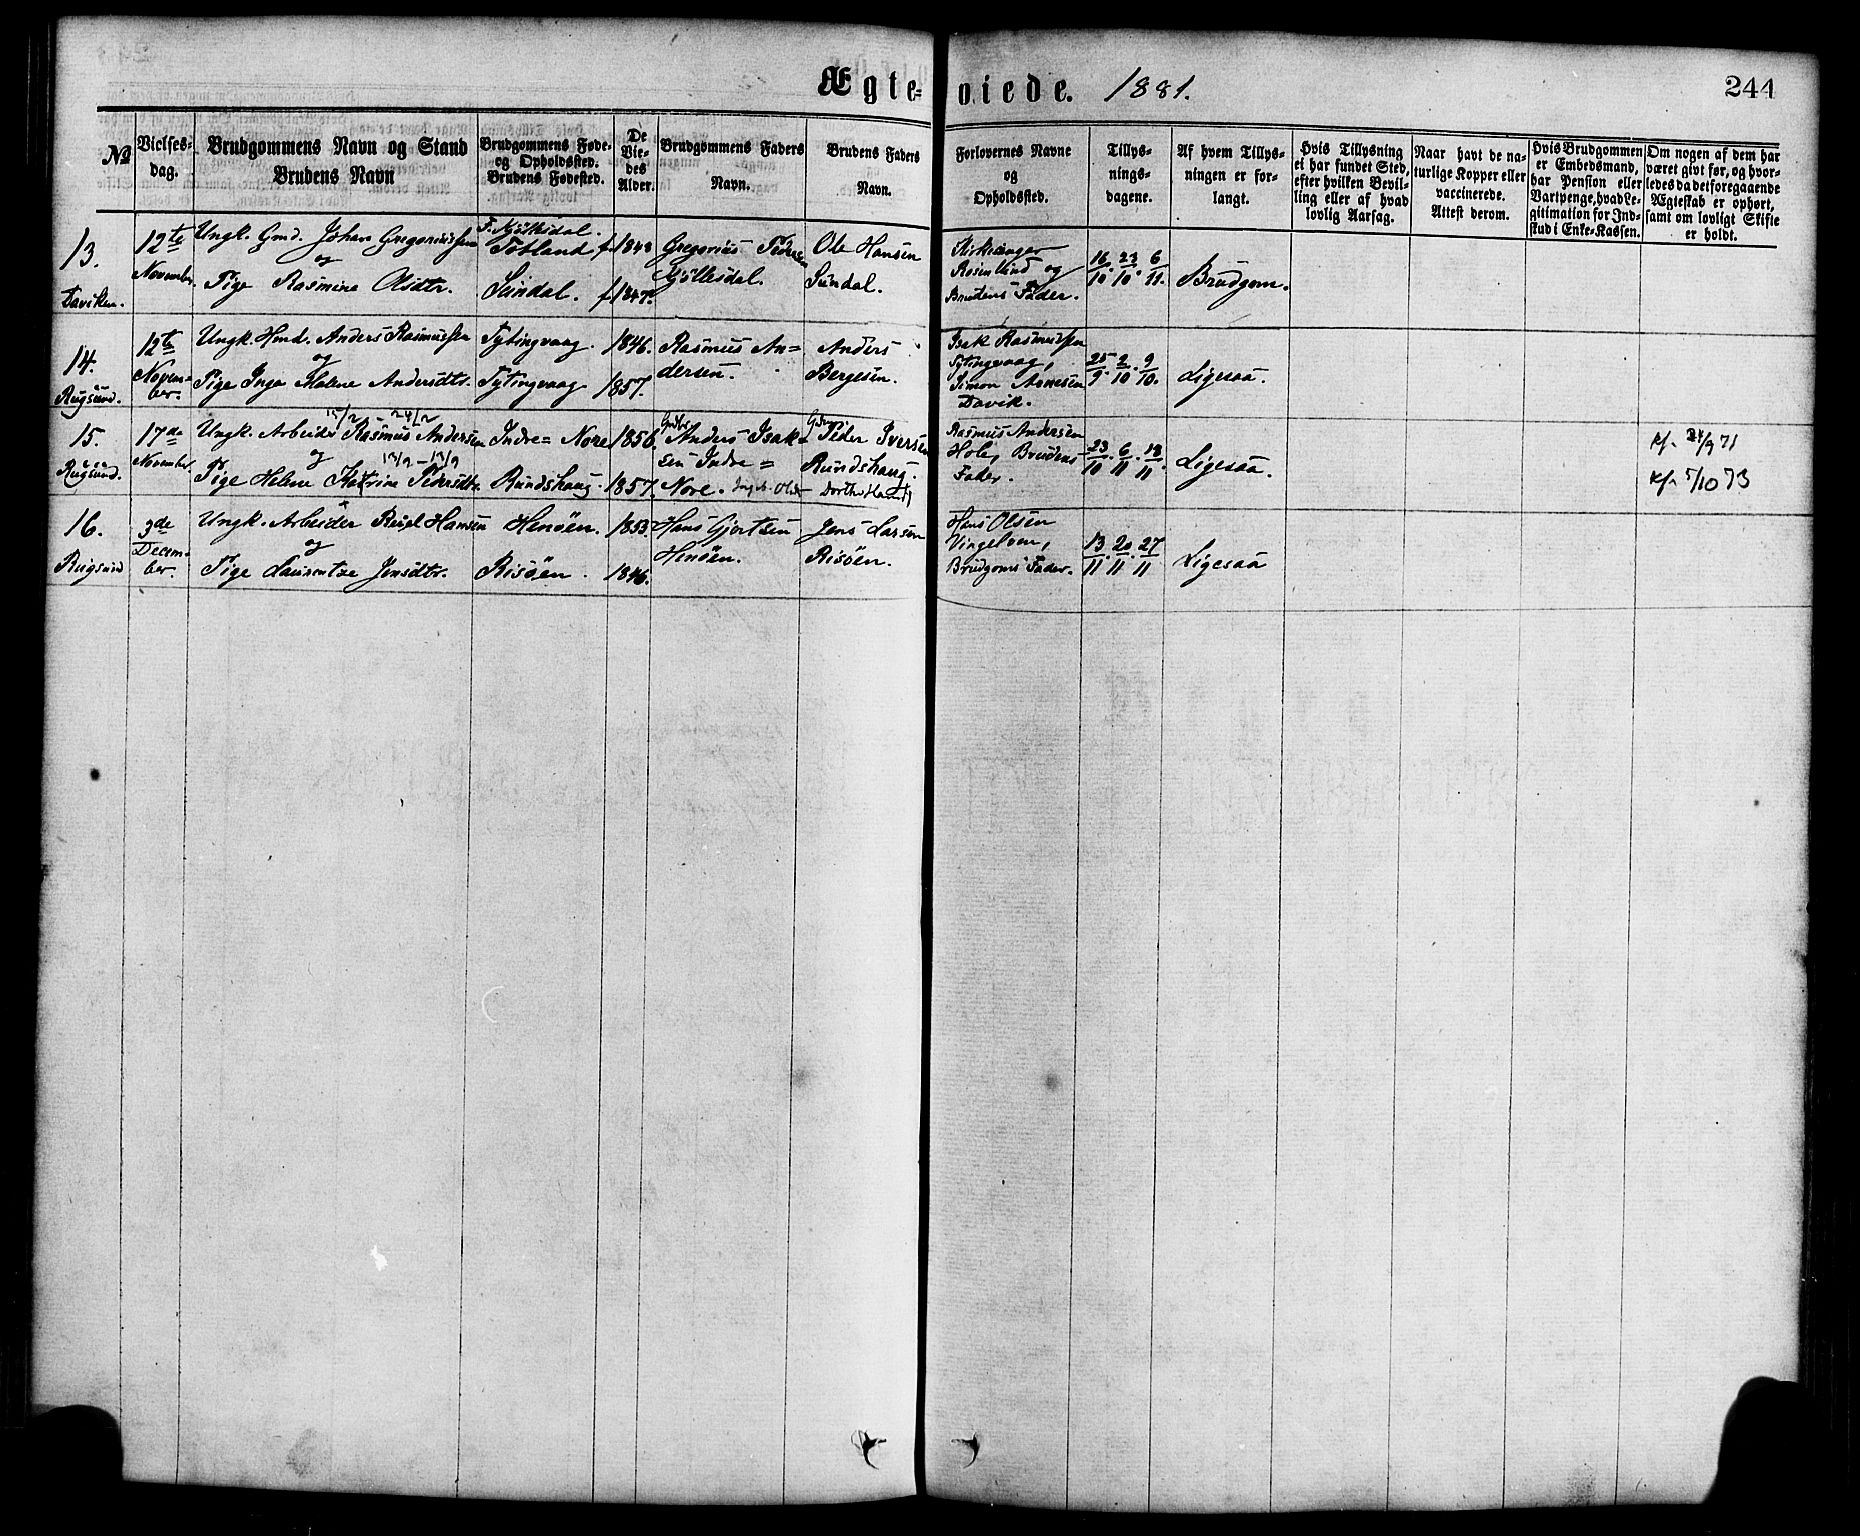 Ægte- viede. 1881. 244
No
Vielses-
dag.
Brudgommens Navn og Stand
Brudens Navn
Brudgommens Føde-
og Opholdssted.
Brudens Fødested.
De
Vie-
des
Alder.
Brudgommens Faders
Navn.
Brudens Faders
Navn.
Forlovernes Navne
og
Opholdssted.
Tillys-
nings-
dagene.
Af hvem Tillys-
ningen er for-
langt.
Hvis Tillysning
ei har fundet Sted,
efter hvilken Bevil-
ling eller af hvad
lovlig Aarsag.
Naar havt de na-
turlige Kopper eller
vaccinerede.
Attest derom.
Hvis Brudgommen
er Embedsmand,
har Pension eller
Vartpenge, hvad Le-
gitimation for Ind-
skud i Enke-Kassen.
Om nogen af dem har
været givt før, og hvor-
ledes da det foregaaende
Ægteskab er ophørt,
samt om lovligt Skifte
er holdt.
13.
Daviken.
12te
November.
Ungk. Gmd. Johan Gregoriussen
og
Pige Rasmine Olsdtr.
Sindal.
f. 1847.
Gregorius Pedersen
Ole Hansen
Sindal.
Kirkesanger
Rosenlund og
Brudens Fader.
16/10. 23/10. 6/11.
Brudgom.
14.
Rugsund.
12te
Novem=
ber.
Ungk. Hmd. Anders Rasmussen
og
Pige Inga Malene Andersdtr.
Tytingvaag.
Tytingvaag
1846.
1857.
Rasmus An=
dersen.
Anders
Bergesen.
Isak Rasmussen
Tytingvaag,
Simon Arnesen
Davik.
25/9. 2/10. 9/10.
Ligesaa.
15.
Rugsund.
17de
November.
15/2 - 24/2
Ungk. Arbeider Rasmus Andersen
og
13/9 - 13/9
Pige Helene Katrine Pedersdtr.
Indre= Nore
Rundshaug.
1856.
1857.
Anders Isak=
sen Indre=
Nore.
Peder Iversen
Rundshaug.
Rasmus Andersen
Hole, Brudens
Fader.
23/10. 6/11. 13/11
Ligesaa.
Kf. 24/9 71
Kf. 5/10 73
16.
Rugsund
3de
Decem=
ber.
Ungk. Arbeider Hansen
og
Pige Laurentze Jensdtr.
Henøen.
Risøen.
1853.
1846.
Hans Gjertsen
Henøen.
Jens Larsen
Risøen.
Hans Olsen
Vingelven,
Brudgoms Fader.
13/11. 20/11. 27/11
Ligesaa